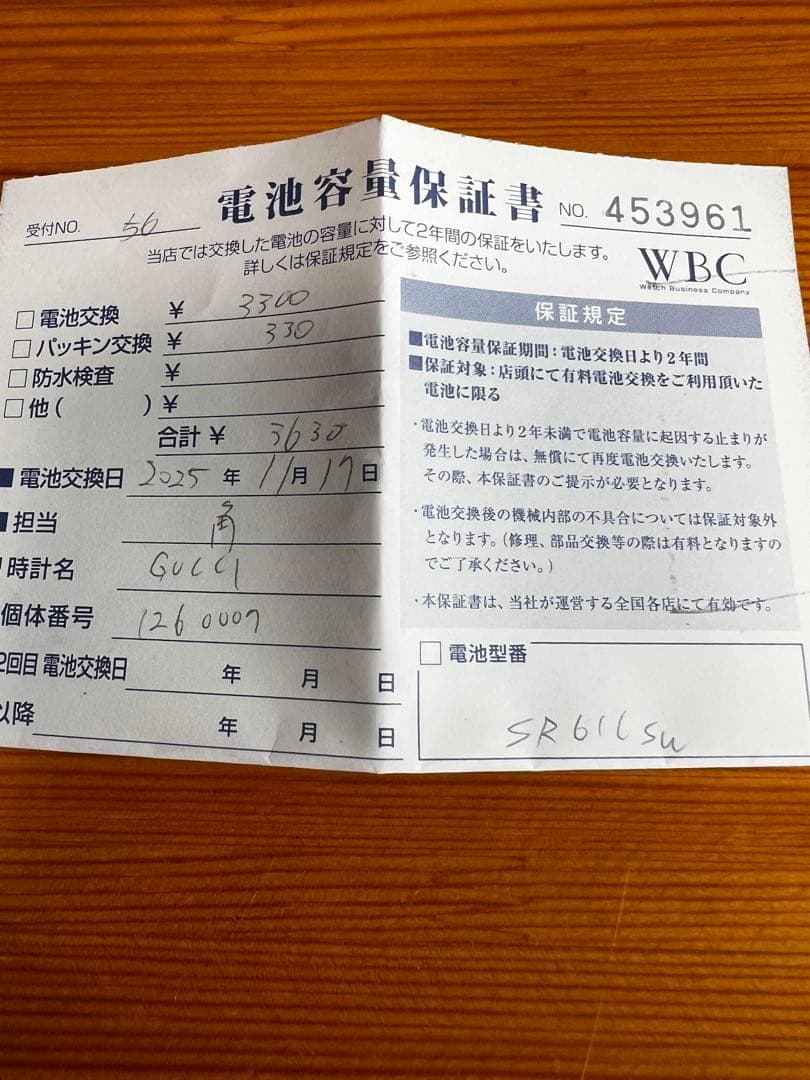 電池容量保証書
受付NO. 56
NO. 453961
当店では交換した電池の容量に対して2年間の保証をいたします。
詳しくは保証規定をご参照ください。
WBC
Watch Business Company
□電池交換 ¥ 3300
□パッキン交換 ¥ 330
□防水検査 ¥
□他( )¥
合計 ¥ 3630
■電池交換日 2025年 11月 17日
■担当 角
時計名 GUCCI
個体番号 1260007
2回目 電池交換日 年 月 日
以降 年 月 日
保証規定
■電池容量保証期間:電池交換日より2年間
■保証対象:店頭にて有料電池交換をご利用頂いた
電池に限る
・電池交換日より2年未満で電池容量に起因する止まりが
発生した場合は、無償にて再度電池交換いたします。
その際、本保証書のご提示が必要となります。
・電池交換後の機械内部の不具合については保証対象外
となります。(修理、部品交換等の際は有料となりますの
でご了承ください。)
・本保証書は、当社が運営する全国各店にて有効です。
□電池型番
SR616SW